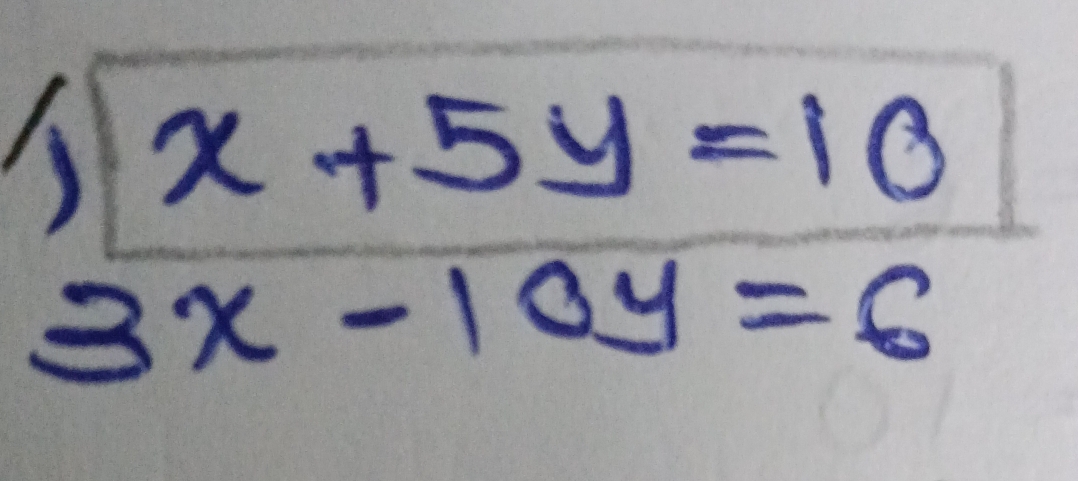 1) x + 5y = 10
3x - 10y = 6